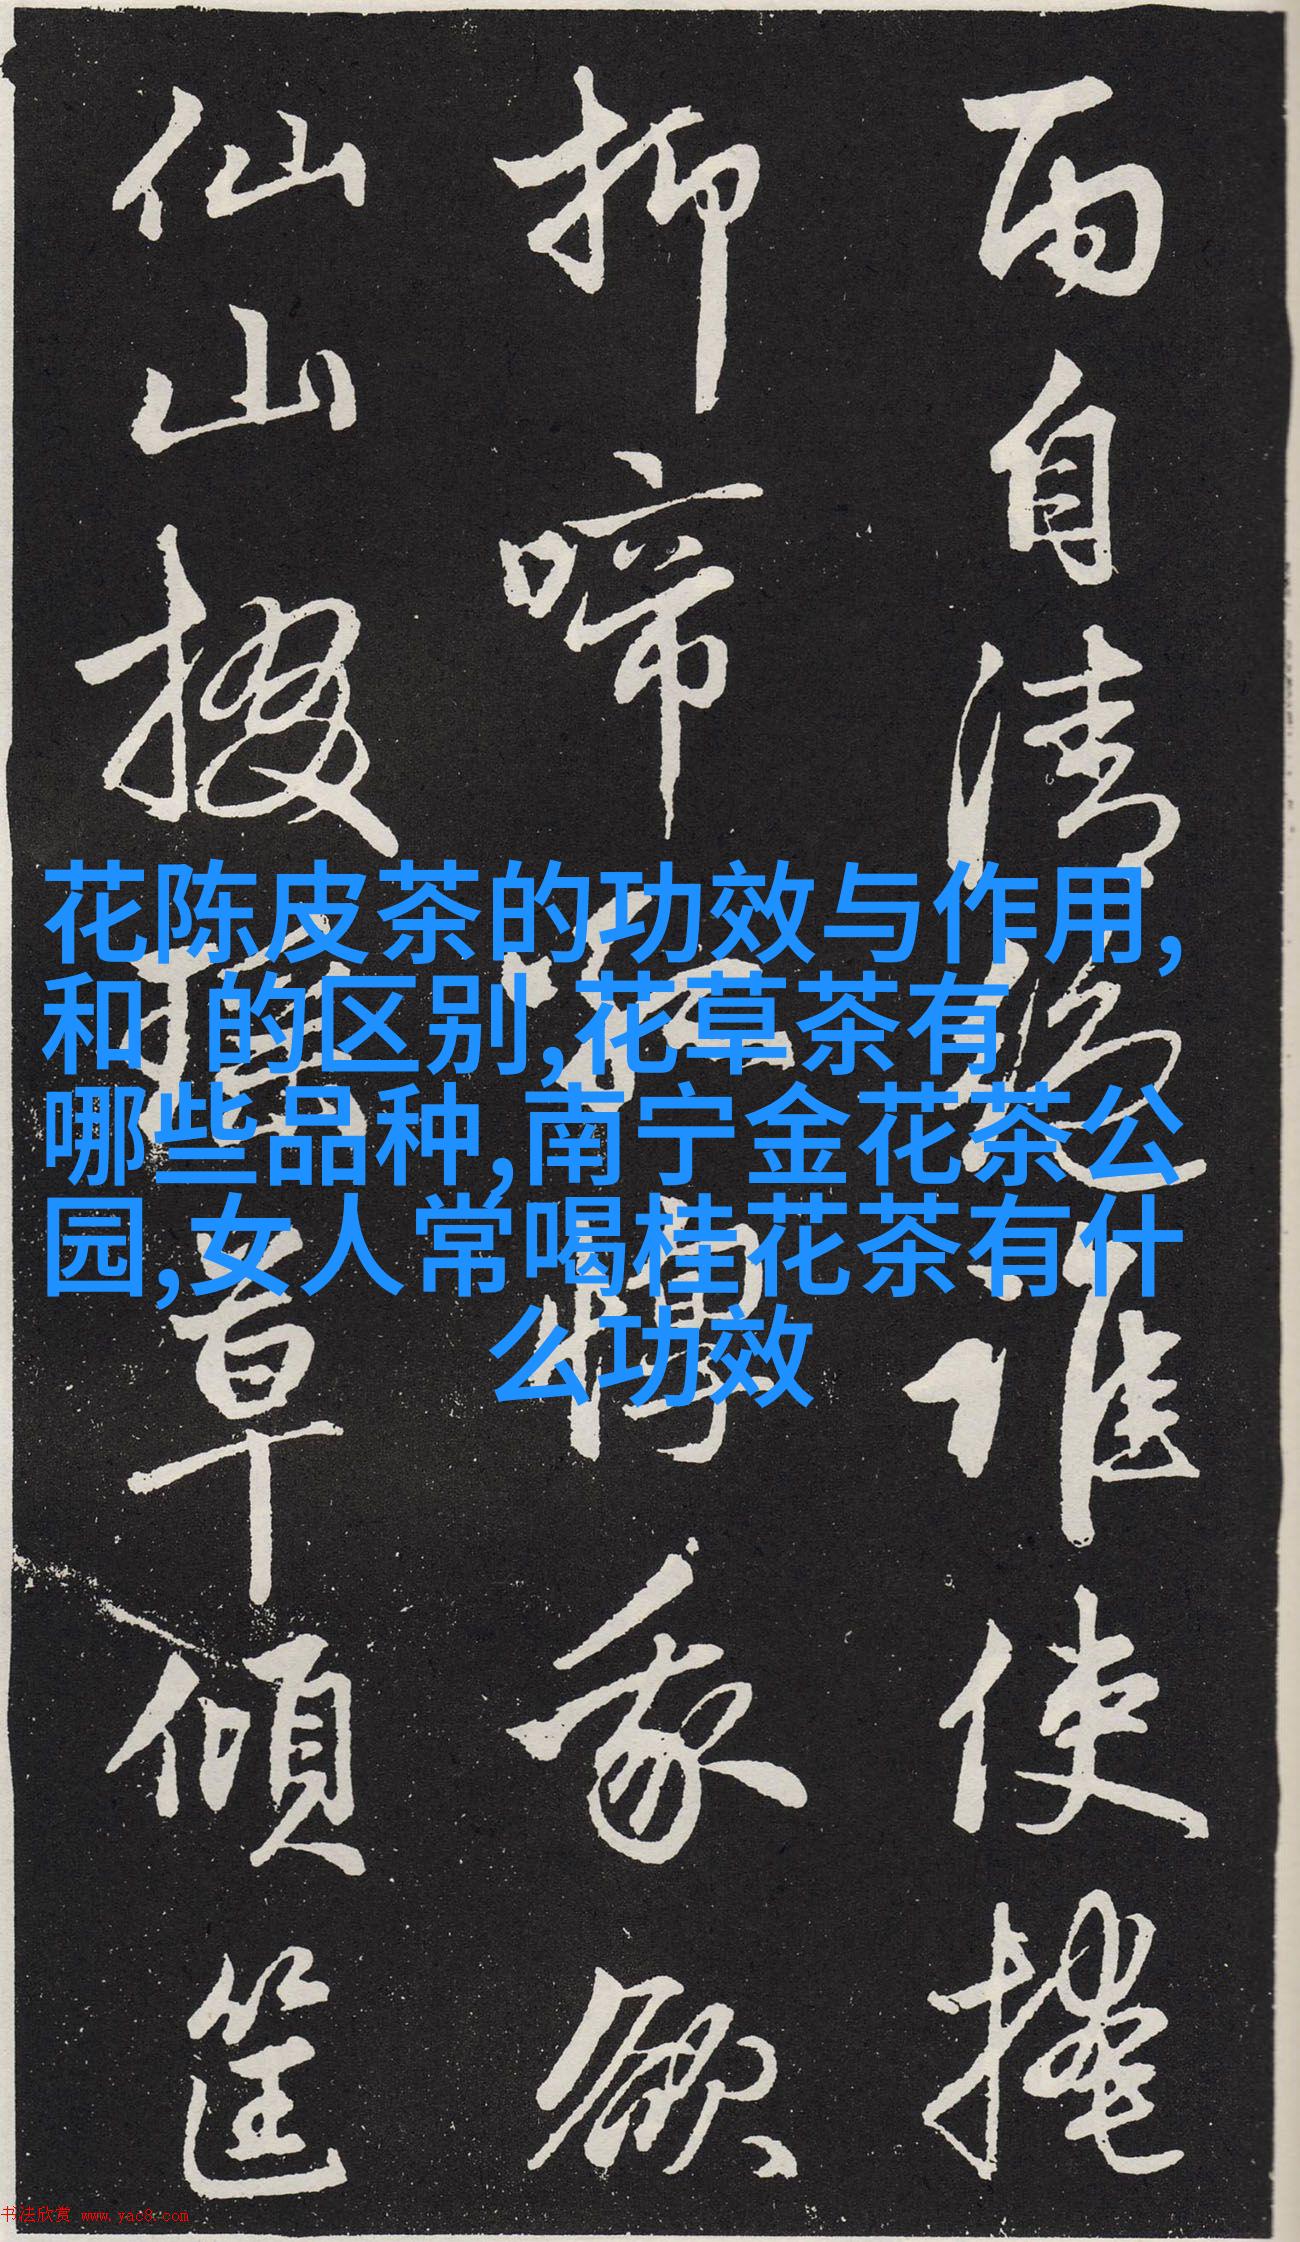 而自清誰使掩
抑啼我欲
仙山掇瑶草傾筐
花陈皮茶的功效与作用,
和 的区别,花草茶有
哪些品种,南宁金花茶公
园,女人常喝桂花茶有什
么功效
书法欣赏 www.yac8.com